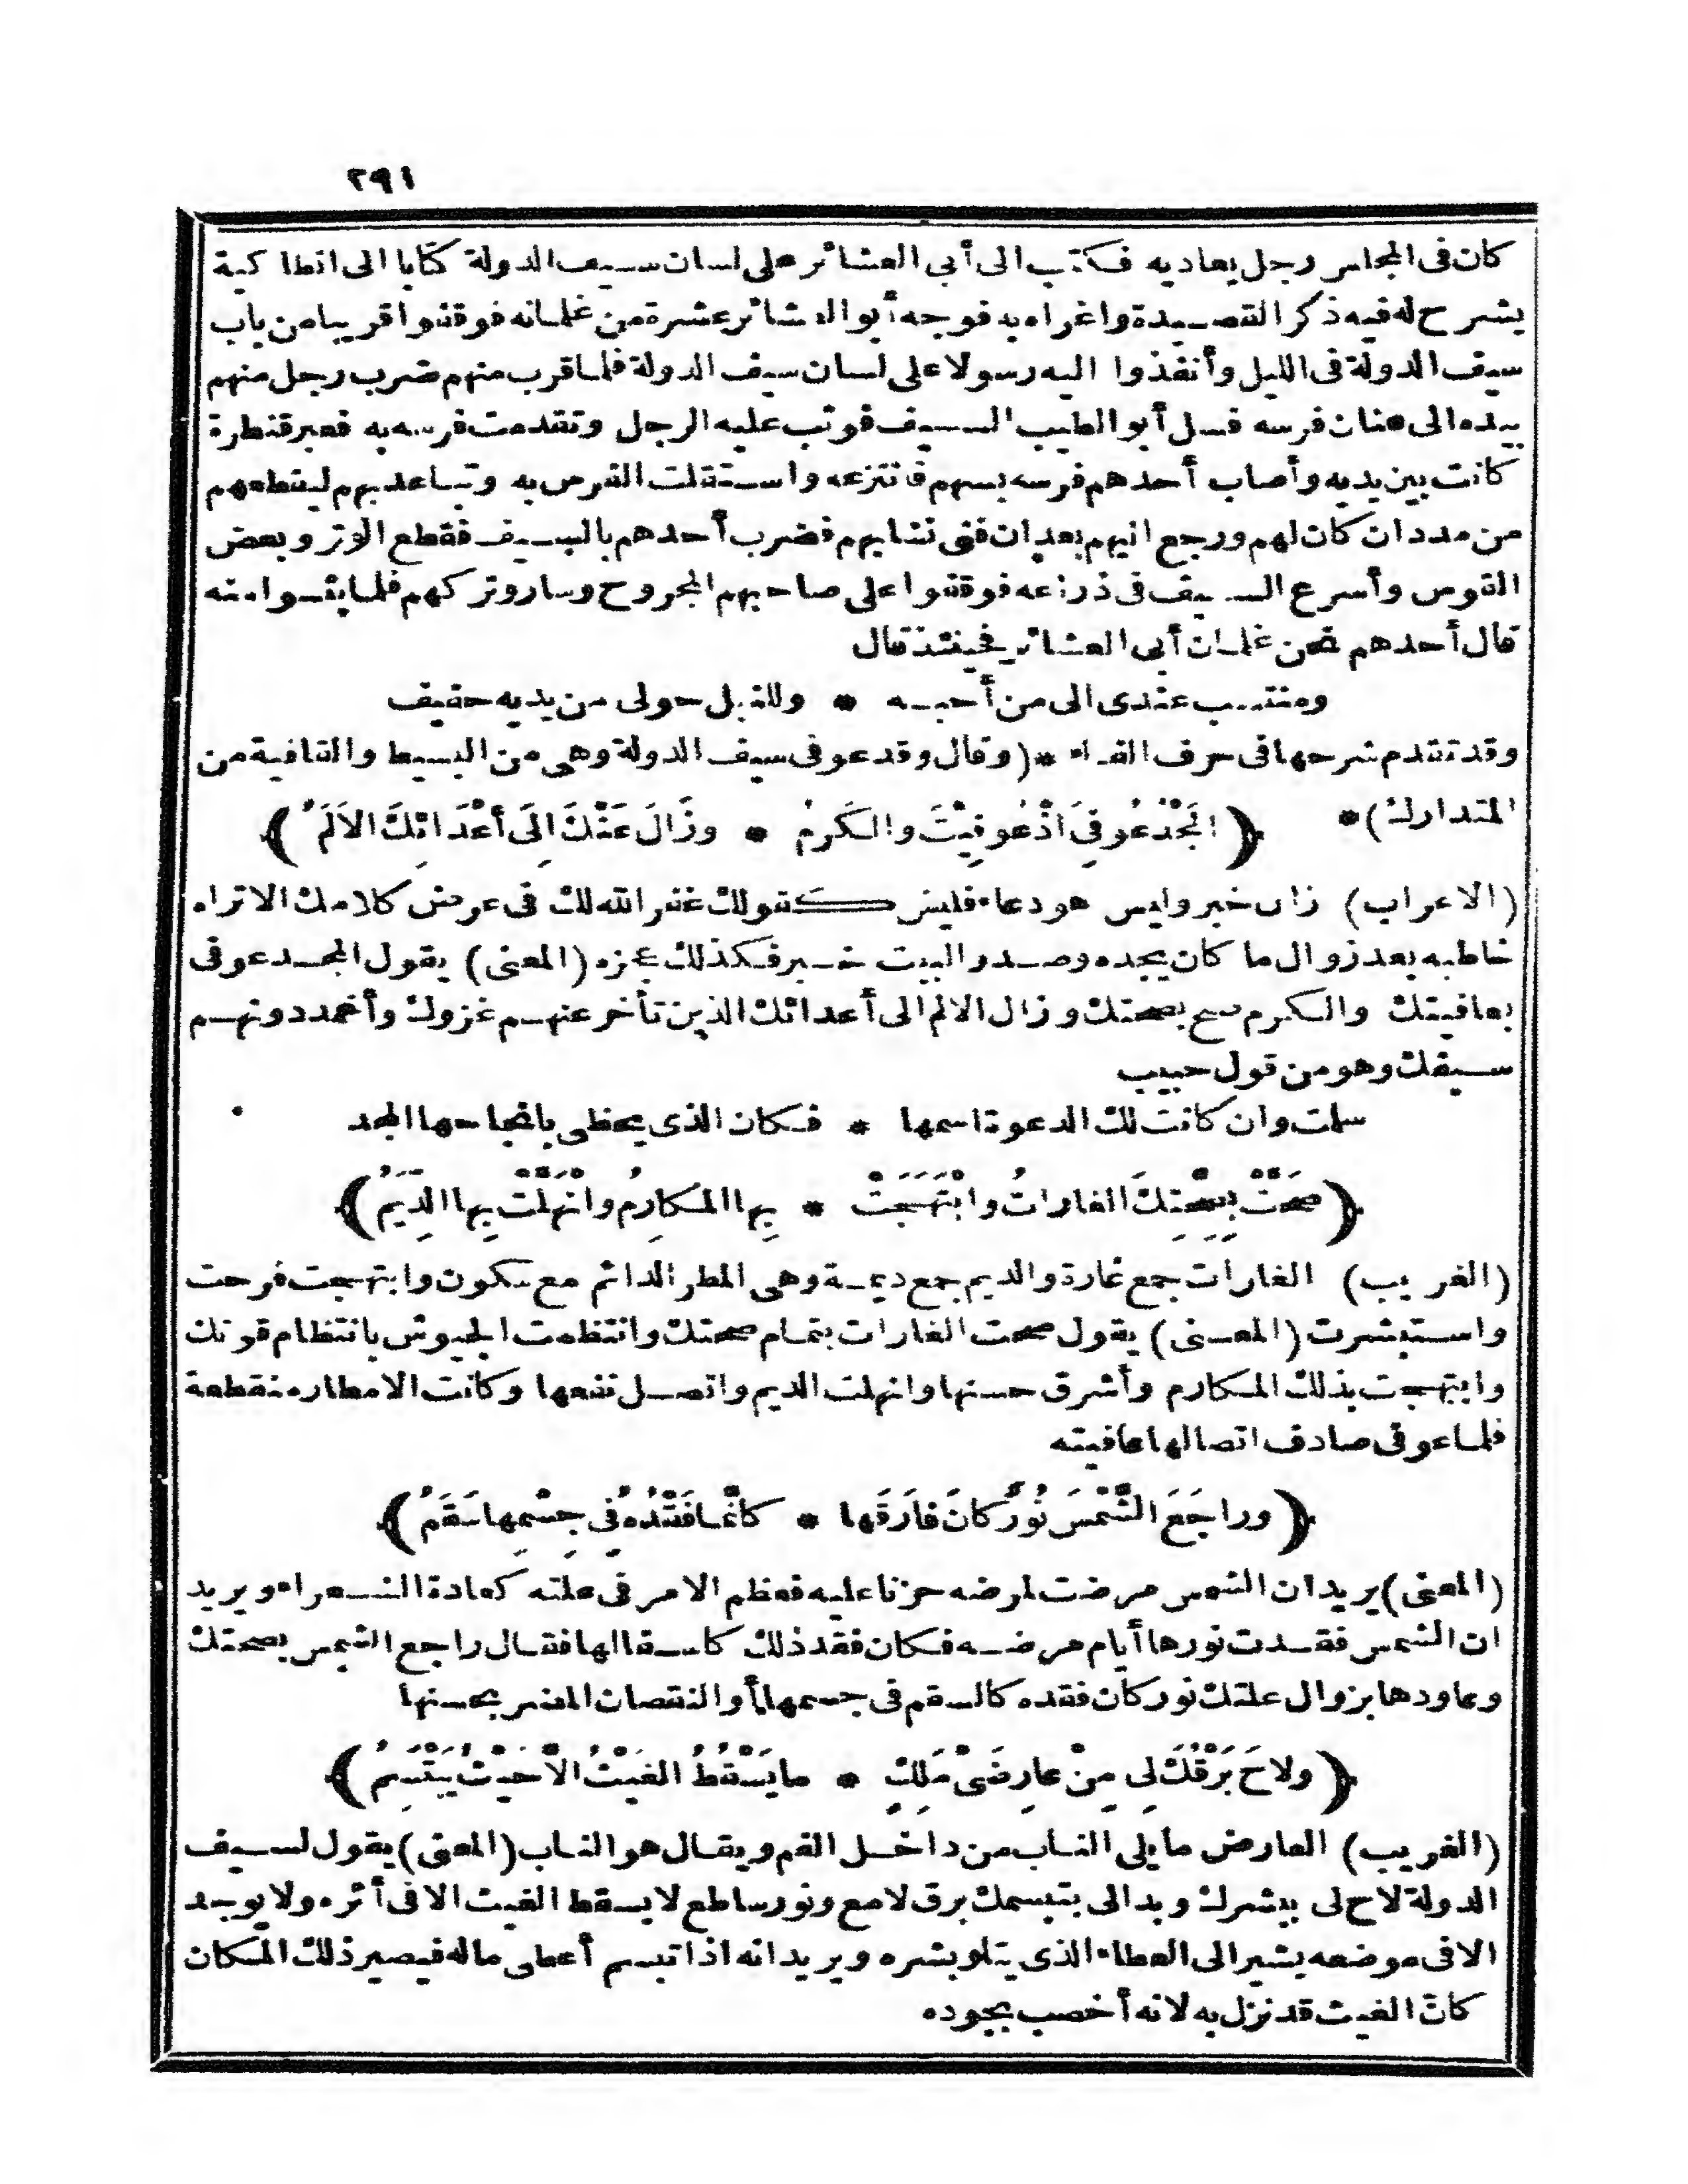 ٢٩١
كان فى المجلس رجل يعاديه فكتب الى أبى العشائر على لسان سيف الدولة كتابا الى انطا كية
يشرح له فيه ذكر القصيدة واغراه به فوجه أبو العشائر عشرة من غلمانه فوقفوا قريبا من باب
سيف الدولة فى الليل وأنفذوا اليه رسولا على لسان سيف الدولة فلما قرب منهم ضرب رجل منهم
بيده الى عنان فرسه فسل أبو الطيب السيف فوثب عليه الرجل وتقدمت فرسه به فعبر قنطرة
كانت بين يديه وأصاب أحدهم فرسه بسهم فانتزعه واستقلت الفرس به وتباعد بهم ليقطعهم
من مدد ان كان لهم ورجع اليهم بعد ان فنى نشابهم فضرب أحدهم بالسيف فقطع الوتر وبعض
القوس وأسرع السيف فى ذراعه فوقفوا على صاحبهم المجروح وسار وتركهم فلما يئسوا منه
قال أحدهم نحن غلمان أبى العشائر فحينئذ قال
ومنتسب عندى الى من أحبه * وللنبل حولى من يديه حفيف
وقد تقدم شرحها فى حرف الفاء *(وقال وقد عوفى سيف الدولة وهى من البسيط والقافية من
المتدارك)* ﴿المَجْدُ عُوفِىَ اذْ عُوفِيْتَ والكَرمُ * وزَالَ عَنْكَ الَى أعْدَائِكَ الاَلَمُ﴾
(الاعراب) زال خبر وليس هو دعاء فليس كقولك غفر الله لك فى عرض كلامك الاتراه
خاطبه بعد زوال ما كان يجده وصدر البيت خبر فكذلك عجزه (المعنى) يقول المجد عوفى
بعافيتك والكرم صح بصحتك وزال الالم الى أعدائك الذين تأخر عنهم غزوك وأغمد دونهم
سيفك وهو من قول حبيب
سلمت وان كانت لك الدعوة اسمها * فكان الذى يحظى بانجاحها المجد
﴿صَحَّتْ بِصِحَّتِكَ الغارَاتُ وابْتَهَجَتْ * بِها المَكارِمُ وانْهَلَّتْ بِها الدِّيَمُ﴾
(الغريب) الغارات جمع غارة والديم جمع ديمة وهى المطر الدائم مع سكون وابتهجت فرحت
واستبشرت (المعنى) يقول صحت الغارات بتمام صحتك وانتظمت الجيوش بانتظام قوتك
وابتهجت بذلك المكارم وأشرق حسنها وانهلت الديم واتصل نفعها وكانت الامطار منقطعة
فلما عوفى صادف اتصالها عافيته
﴿وراجَعَ الشَّمْسَ نُورٌ كانَ فارَقَها * كأنَّما فَقْدُهُ فى جِسْمِها سَقَمُ﴾
(المعنى) يريد ان الشمس مرضت لمرضه حزنا عليه فعظم الامر فى علته كعادة الشعراء ويريد
ان الشمس فقدت نورها أيام مرضه فكان فقد ذلك كالسقام لها فقال راجع الشمس بصحتك
وعاودها بزوال علتك نور كان فقده كالسقم فى جسمها أو النقصان المضر بحسنها
﴿ولاحَ بَرْقُكَ لِى مِنْ عارِضَىْ مَلِكٍ * ما يَسْقُطُ الغَيْثُ الاَّ حَيْثُ يَبْتَسِمُ﴾
(الغريب) العارض ما يلى الناب من داخل الفم ويقال هو الناب (المعنى) يقول لسيف
الدولة لاح لى ببشرك وبدا لى بتبسمك برق لامع ونور ساطع لا يسقط الغيث الا فى أثره ولا يوجد
الا فى موضعه يشير الى العطاء الذى يتلو بشره ويريد انه اذا تبسم أعطى ماله فيصير ذلك المكان
كانّ الغيث قد نزل به لانه أخصب بجوده